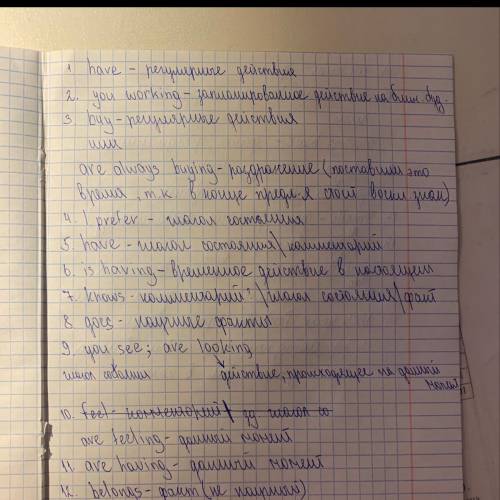 1 have - регулярные действия
2. you working - запланированное действие на ближ. буд.
3 buy - регулярные действия
или
are always buying - раздражение (поставили это
время, т.к. в конце предл-я стоит воскл. знак)
4. I prefer - глагол состояния
5. have - глагол состояния \ комментарий
6. is having - временное действие в настоящем
7. knows - комментарий \ глагол состояния / факт
8. does - научные факты
9. you see; are looking
глагол действие, происходящее на данный
момент
10. feel - комментарий
are feeling - данный момент
11. are having - данный момент
12. belongs - факт (не научный)